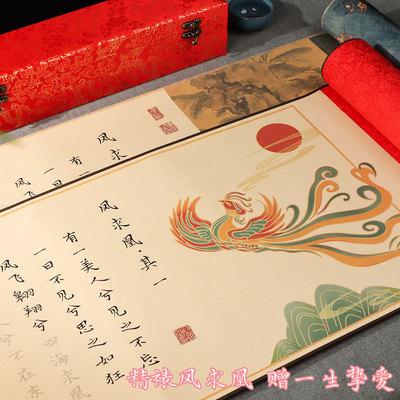 凤求
有一
一日
凤飞
凤求凰·其一
有一美人兮见之不忘
一日不见兮思之如狂
凤飞翱翔兮四海求凰
不在东
精裱凤求凰 赠一生挚爱